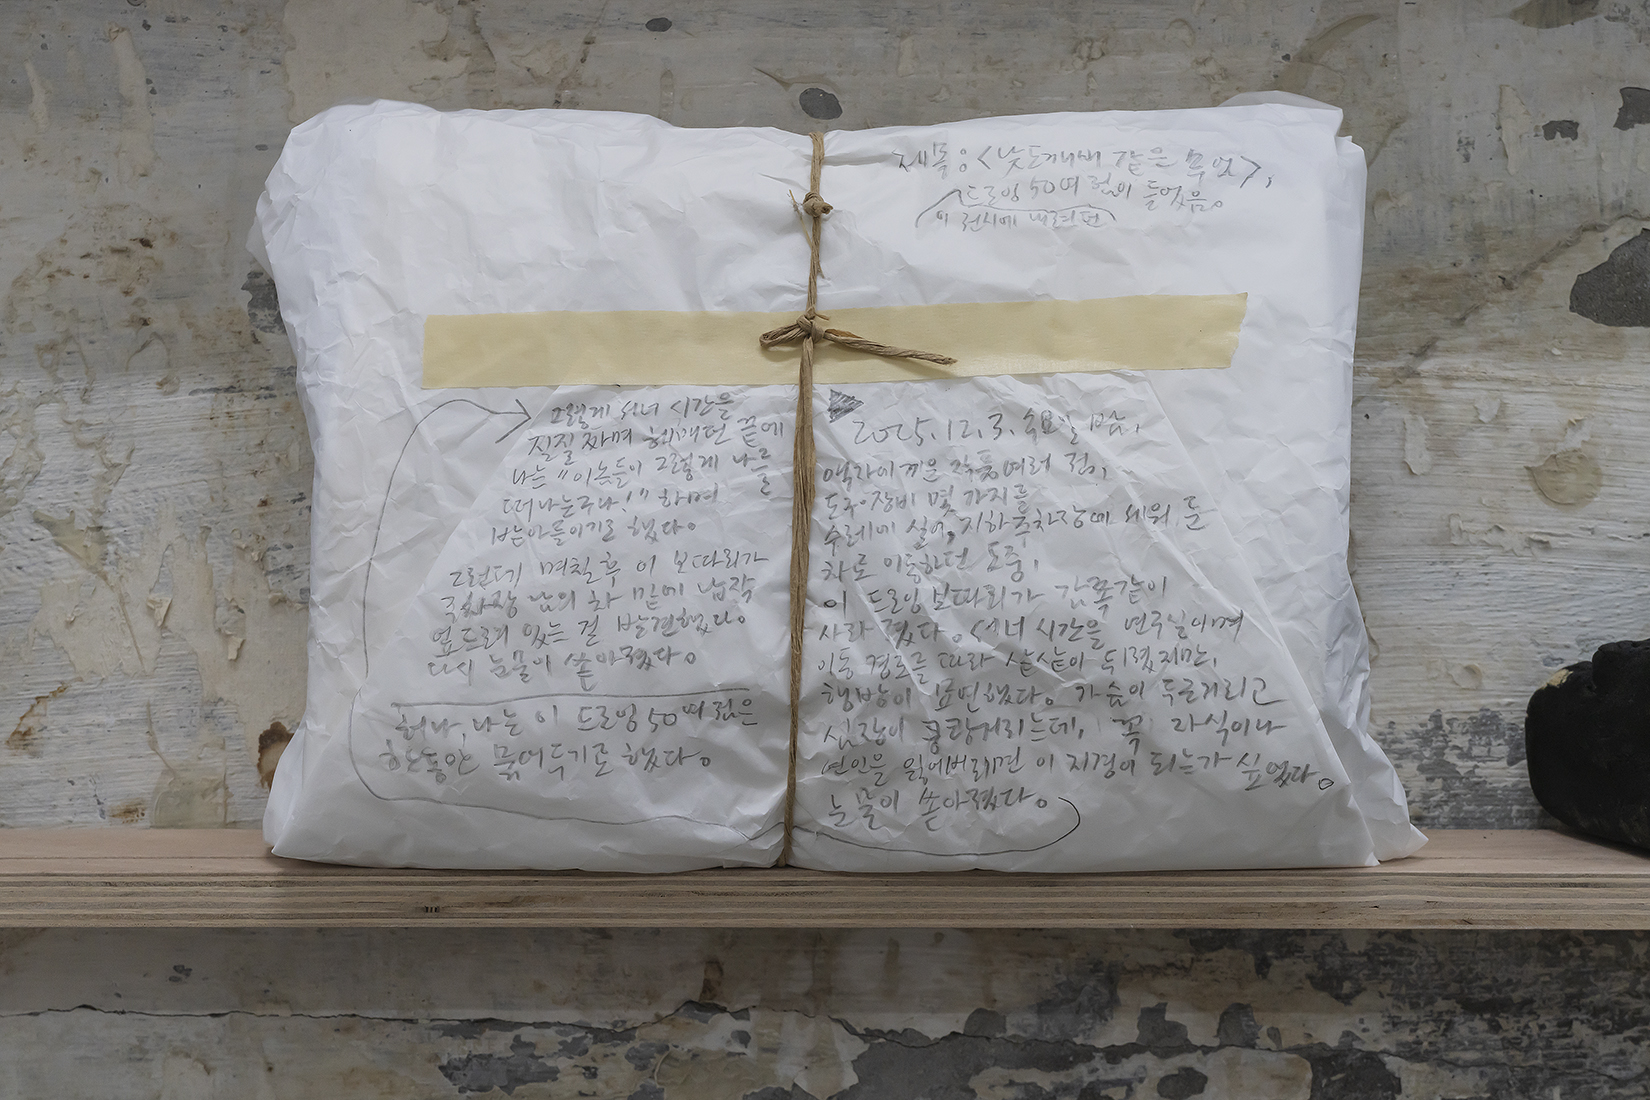 제목: <낮도깨비 같은 무엇>,
드로잉 50여 점이 들어있음.
이 전시에 내려던
2025. 12. 3. 수요일 밤,
액자에 끼운 작품 여러 점,
도구·장비 몇 가지를
수레에 실어, 지하주차장에 세워 둔
차로 이동하던 도중,
이 드로잉 보따리가 감쪽같이
사라졌다. 서너 시간을 연구실이며
이동 경로를 따라 샅샅이 뒤졌지만,
행방이 묘연했다. 가슴이 두근거리고
심장이 쿵쾅거리는데, 꼭 자식이나
연인을 잃어버리면 이 지경이 되는가 싶었다.
눈물이 쏟아졌다.
그렇게 서너 시간을
질질 짜며 헤매던 끝에
나는 "이놈들이 그렇게 나를
떠나는구나!" 하며
받아들이기로 했다.
그런데 며칠 후 이 보따리가
주차장 남의 차 밑에 납작
엎드려 있는 걸 발견했다.
다시 눈물이 쏟아졌다.
허나, 나는 이 드로잉 50여 점은
한동안 묶어두기로 했다.